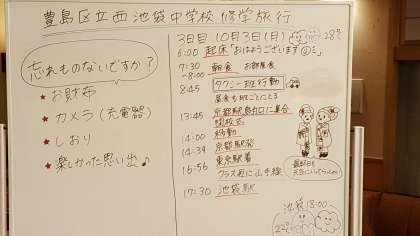 豊島区立西池袋中学校 修学旅行
忘れものないですか?
★ お財布
★ カメラ(充電器)
★ しおり
★ 楽しかった思い出♪
3日目 10月3日(月) 28℃
6:00 起床「おはようございます
7:30 朝食 お部屋食
~8:00
8:45 タクシー班行動
昼食も班ごとにとる
13:45 京都駅八条口に集合
閉校式
14:00 移動
14:39 京都駅発
東京駅着
16:56 クラス毎に山手線
17:30 池袋駅
池袋 18:00
22℃